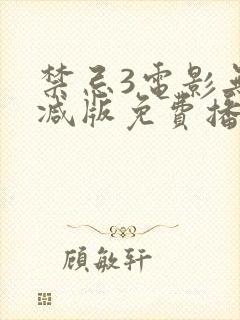 禁忌3電影無
减版免費播
顧敏轩